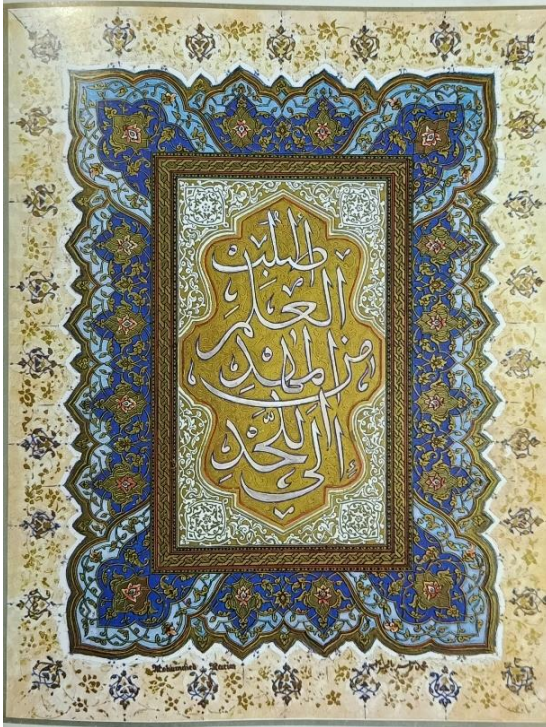 اطلب
العلم
من المهد
الى اللحد
Mohammed Racim